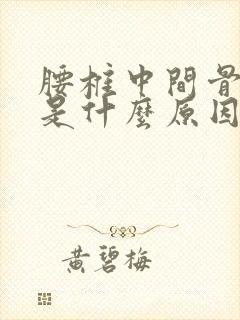 腰椎中間骨
是什麼原因
黃碧梅